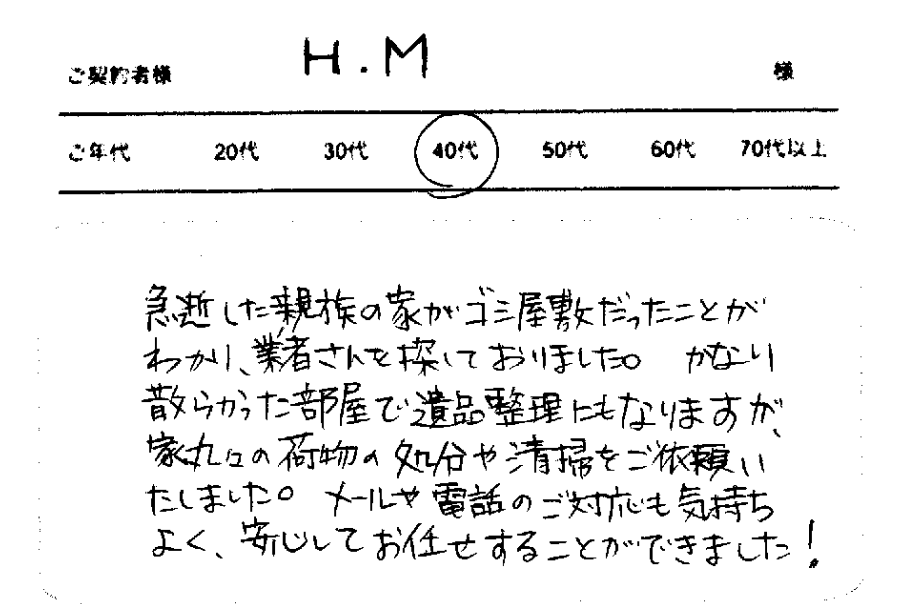 ご契約者様 H.M 様
ご年代 20代 30代 40代 50代 60代 70代以上
急逝した親族の家がゴミ屋敷だったことが
わかり、業者さんを探しておりました。 かなり
散らかった部屋で遺品整理にもなりますが、
家丸ごとの荷物の処分や清掃をご依頼い
たしました。 メールや電話のご対応も気持ち
よく、安心してお任せすることができました!